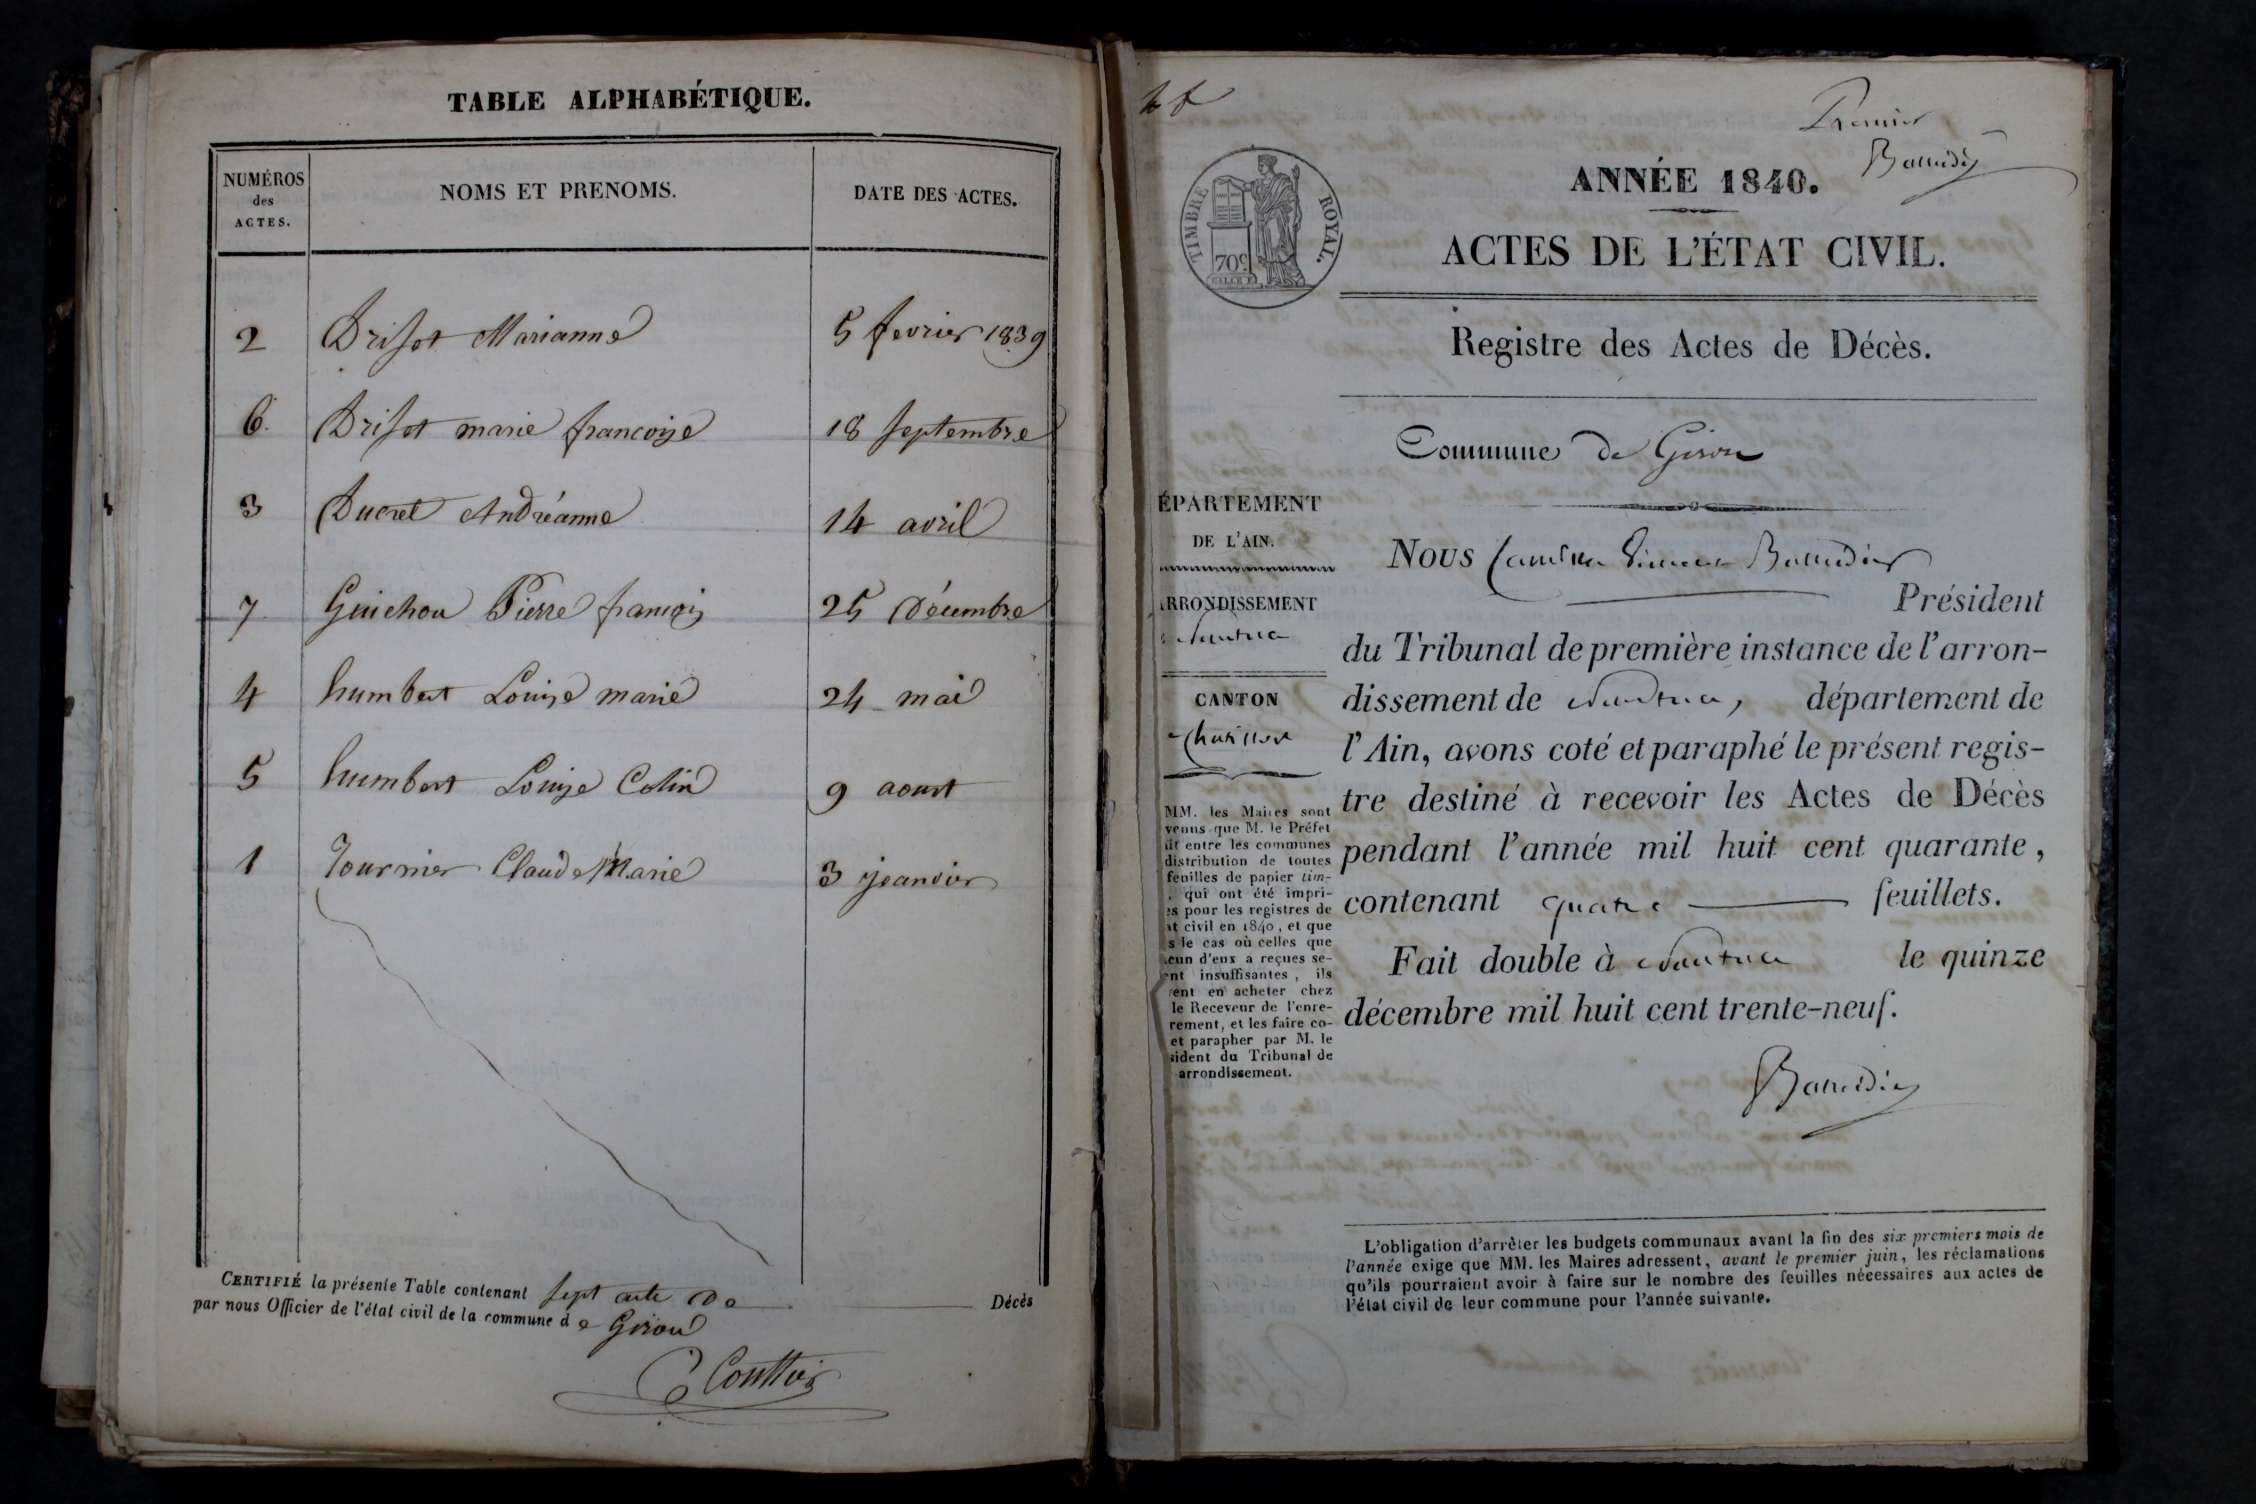 TABLE ALPHABÉTIQUE.
NUMÉROS des ACTES.
NOMS ET PRENOMS.
DATE DES ACTES.
2 Drisot Marianne 5 fevrier 1839
6. Drisot marie francoise 18 septembre
3 Ducret Andréanne 14 avril
7 Guichon Pierre francois 25 Décembre
4 humbert Louise marie 24 mai
5 humbert Louise Colin 9 aoust
1 Tournier Claude Marie 3 jeanvier
CERTIFIÉ la présente Table contenant sept acte De Décès
par nous Officier de l'état civil de la commune de Giron
Premier
ANNÉE 1840.
TIMBRE ROYAL.
70c
ACTES DE L'ÉTAT CIVIL.
Registre des Actes de Décès.
Commune de Giron
ÉPARTEMENT
DE L'AIN.
ARRONDISSEMENT
Nantua
CANTON
Chatillon
MM. les Maires sont
venus que M. le Préfet
it entre les communes
distribution de toutes
feuilles de papier tim-
. qui ont été impri-
es pour les registres de
at civil en 1840, et que
s le cas où celles que
cun d'eux a reçues se-
ent insuffisantes, ils
rent en acheter chez
le Receveur de l'enre-
rement, et les faire co-
et parapher par M. le
sident du Tribunal de
arrondissement.
Nous
Président
du Tribunal de première instance de l'arron-
dissement de Nantua, département de
l'Ain, avons coté et paraphé le présent regis-
tre destiné à recevoir les Actes de Décès
pendant l'année mil huit cent quarante,
contenant quatre feuillets.
Fait double à Nantua le quinze
décembre mil huit cent trente-neuf.
L'obligation d'arrêter les budgets communaux avant la fin des six premiers mois de
l'année exige que MM. les Maires adressent, avant le premier juin, les réclamations
qu'ils pourraient avoir à faire sur le nombre des feuilles nécessaires aux actes de
l'état civil de leur commune pour l'année suivante.